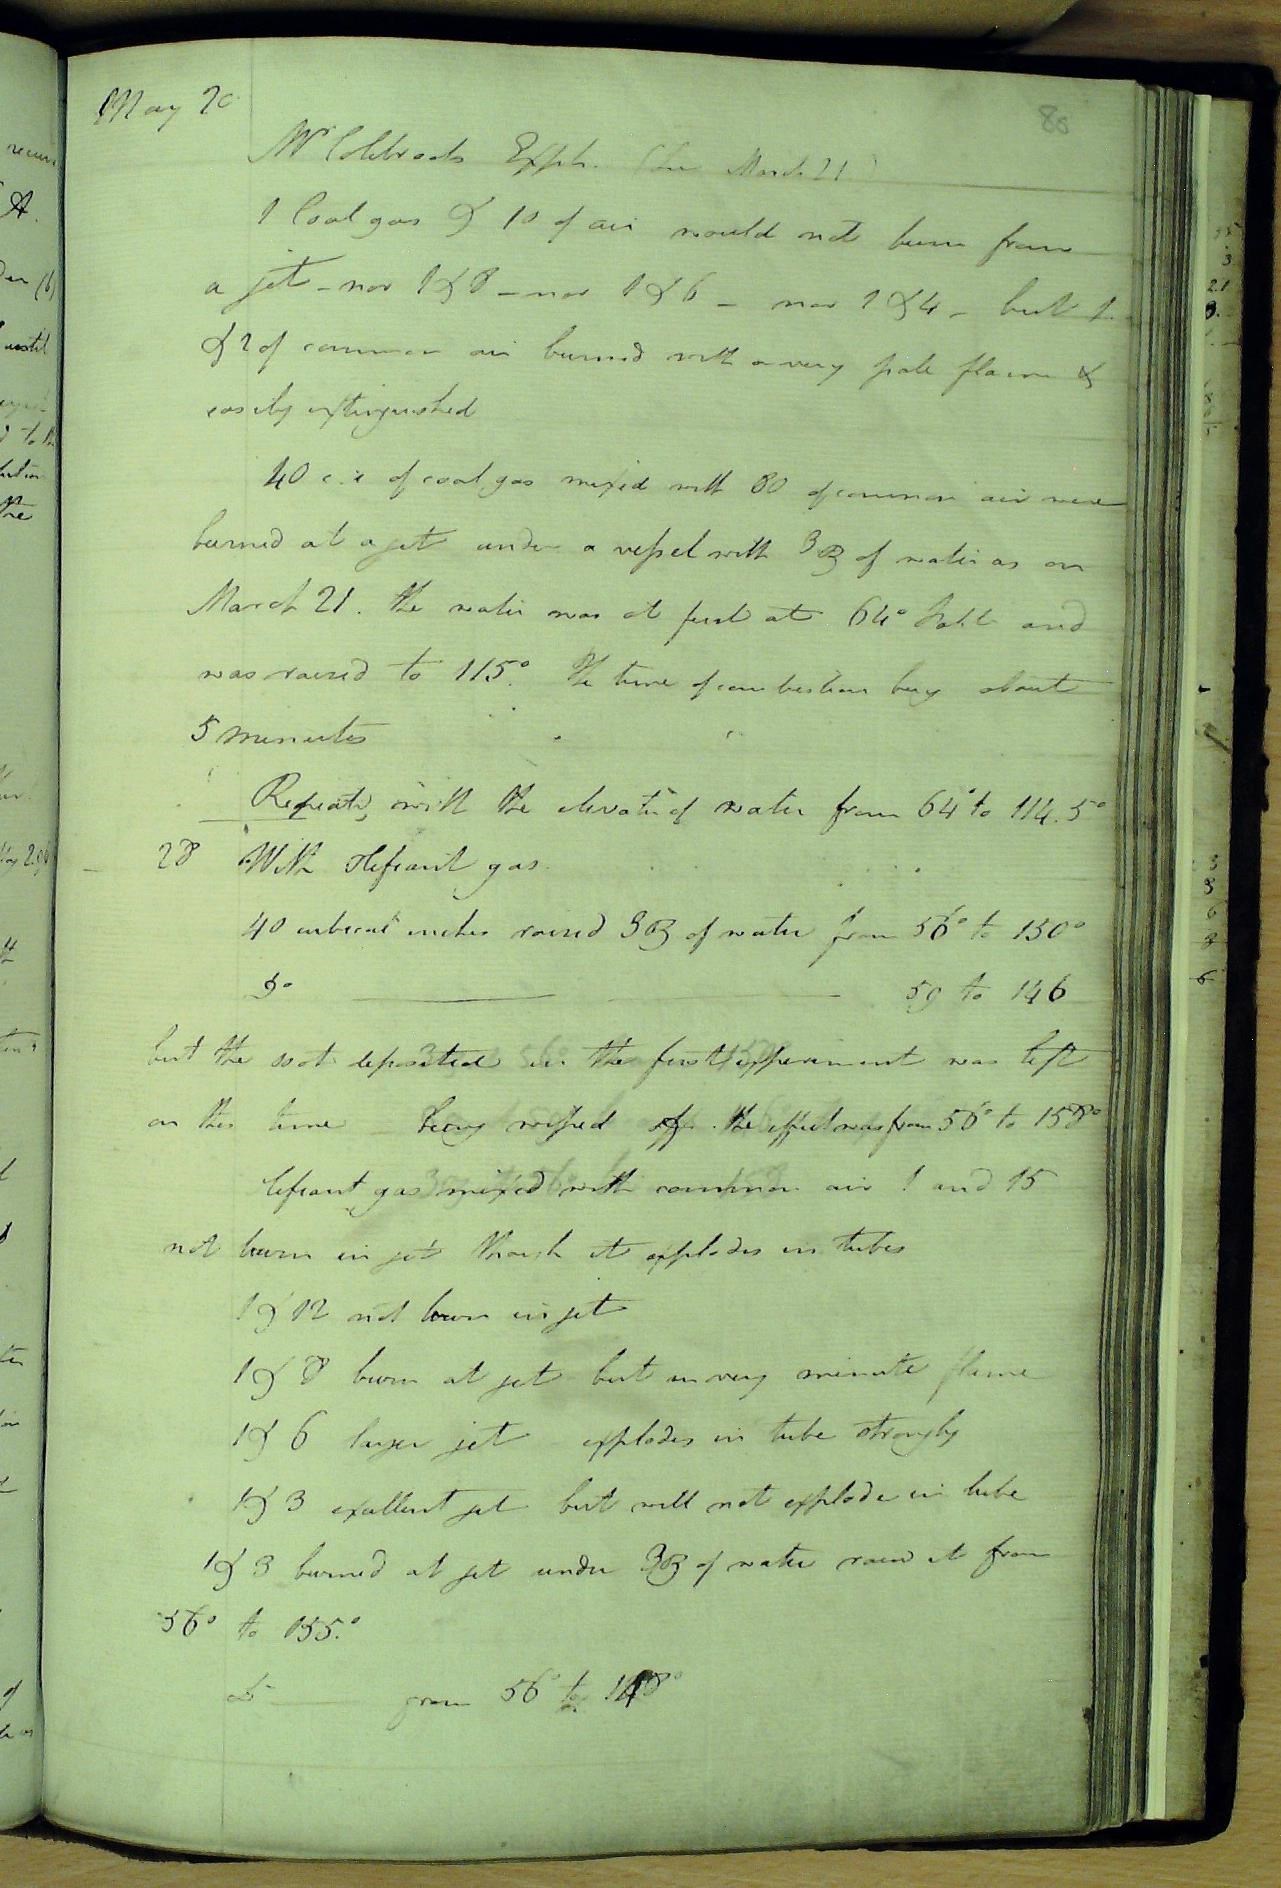 May 20
80
Mr Colebrooks Expts. (See March 21)
1 Coal gas & 10 of air would not burn from
a jet - nor 1 & 8 - nor 1 & 6 - nor 1 & 4 - but 1
& 2 of common air burned with a very pale flame &
easily extinguished
40 c.i of coal gas mixed with 80 of common air were
burned at a jet under a vessel with 3℥ of water as on
March 21. the water was at first at 64° Faht and
was raised to 115°. The time of combustion being about
5 minutes
Repeated with the elevatn of water from 64° to 114.5°
28 With Olefiant gas
40 cubical inches raised 3℥ of water from 56° to 150°
Do 59 to 146
but the soot deposited in the first experiment was left
on this time being wiped off. the effect was from 56° to 158°
Olefiant gas mixed with common air 1 and 15
not burn in jet though it explodes in tubes
1 & 12 not burn in jet
1 & 8 burn at jet but in very minute flame
1 & 6 larger jet explodes in tube strongly
1 & 3 excellent jet but will not explode in tube
1 & 3 burned at jet under 3℥ of water raised it from
56° to 155.°
Do from 56° to 148°